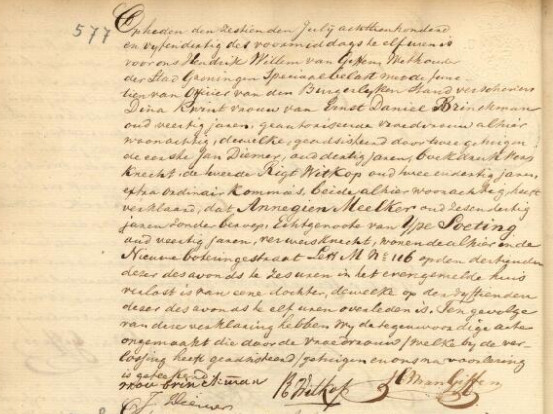 577
Op heden den zestienden July achttienhonderd
en vyfendertig des voormiddags te elf uren is
voor ons Hendrik Willem van Giffen, Wethouder
der Stad Groningen Speciaal belast met de func-
tien van Officier van den Burgerlyken Stand verschenen
Dina Kwint vrouw van Ernst Daniel Brinckman
oud veertig jaren, geautoriseerde vroedvrouw alhier
woonachtig, dewelke, geadsisteerd door twee getuigen
de eerste Jan Diemer, oud dertig jaren, boekdrukkers
knecht de tweede Rigt Witkop oud twee endertig jaren,
extra ordinair Kommies, beide alhier woonachtig heeft
verklaard, dat Annegien Meelker oud zesendertig
jaren zonder beroep, Echtgenoote van Ype Poeting
oud veertig jaren, verwersknecht, wonende alhier in de
Nieuwe boteringestraat Lett M No 116 op den dertienden
dezer des avonds te zes uren in het evengemelde huis
verlost is van eene dochter, dewelke op den vyftienden
dezer des avonds te elf uren overleden is. Ten gevolge
van deze verklaring hebben wy de tegenwoordige acte
opgemaakt die door de vroedvrouw /welke by de ver-
lossing heeft geadsisteerd/ getuigen en ons na voorlezing
is geteekend
vrou brinckman
R Witkop
HW van Giffen
J. Diemer